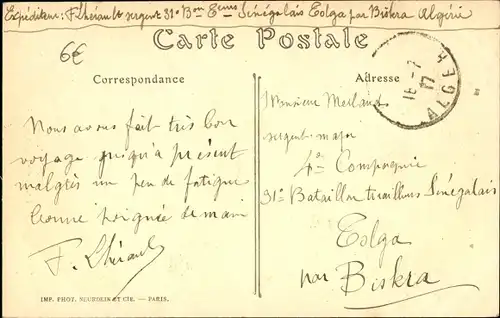 Expéditeur: F. Lhérault sergent 31e Bon Eeurs Sénégalais Tolga par Biskra Algérie
6€
Carte Postale
Correspondance
Adresse
16-7
17
ALGER
Nous avons fait très bon
voyage jusqu'à présent
malgrès un peu de fatigue
bonne poignée de main
F. Lhérault
Monsieur
sergent-major
4e Compagnie
31e Bataillon tirailleurs Sénégalais
Tolga
par Biskra
IMP. PHOT. NEURDEIN ET CIE. — PARIS.